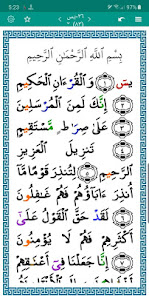 5:23
٣٦-يس
(٨٣)
بِسْمِ ٱللَّهِ ٱلرَّحْمَٰنِ ٱلرَّحِيمِ
يسٓ ١ وَٱلْقُرْءَانِ ٱلْحَكِيمِ
٢ إِنَّكَ لَمِنَ ٱلْمُرْسَلِينَ
٣ عَلَىٰ صِرَٰطٍ مُّسْتَقِيمٍ
٤ تَنزِيلَ ٱلْعَزِيزِ
ٱلرَّحِيمِ ٥ لِتُنذِرَ قَوْمًا مَّآ
أُنذِرَ ءَابَآؤُهُمْ فَهُمْ غَٰفِلُونَ
٦ لَقَدْ حَقَّ ٱلْقَوْلُ عَلَىٰٓ
أَكْثَرِهِمْ فَهُمْ لَا يُؤْمِنُونَ
٧ إِنَّا جَعَلْنَا فِىٓ أَعْنَٰقِهِمْ